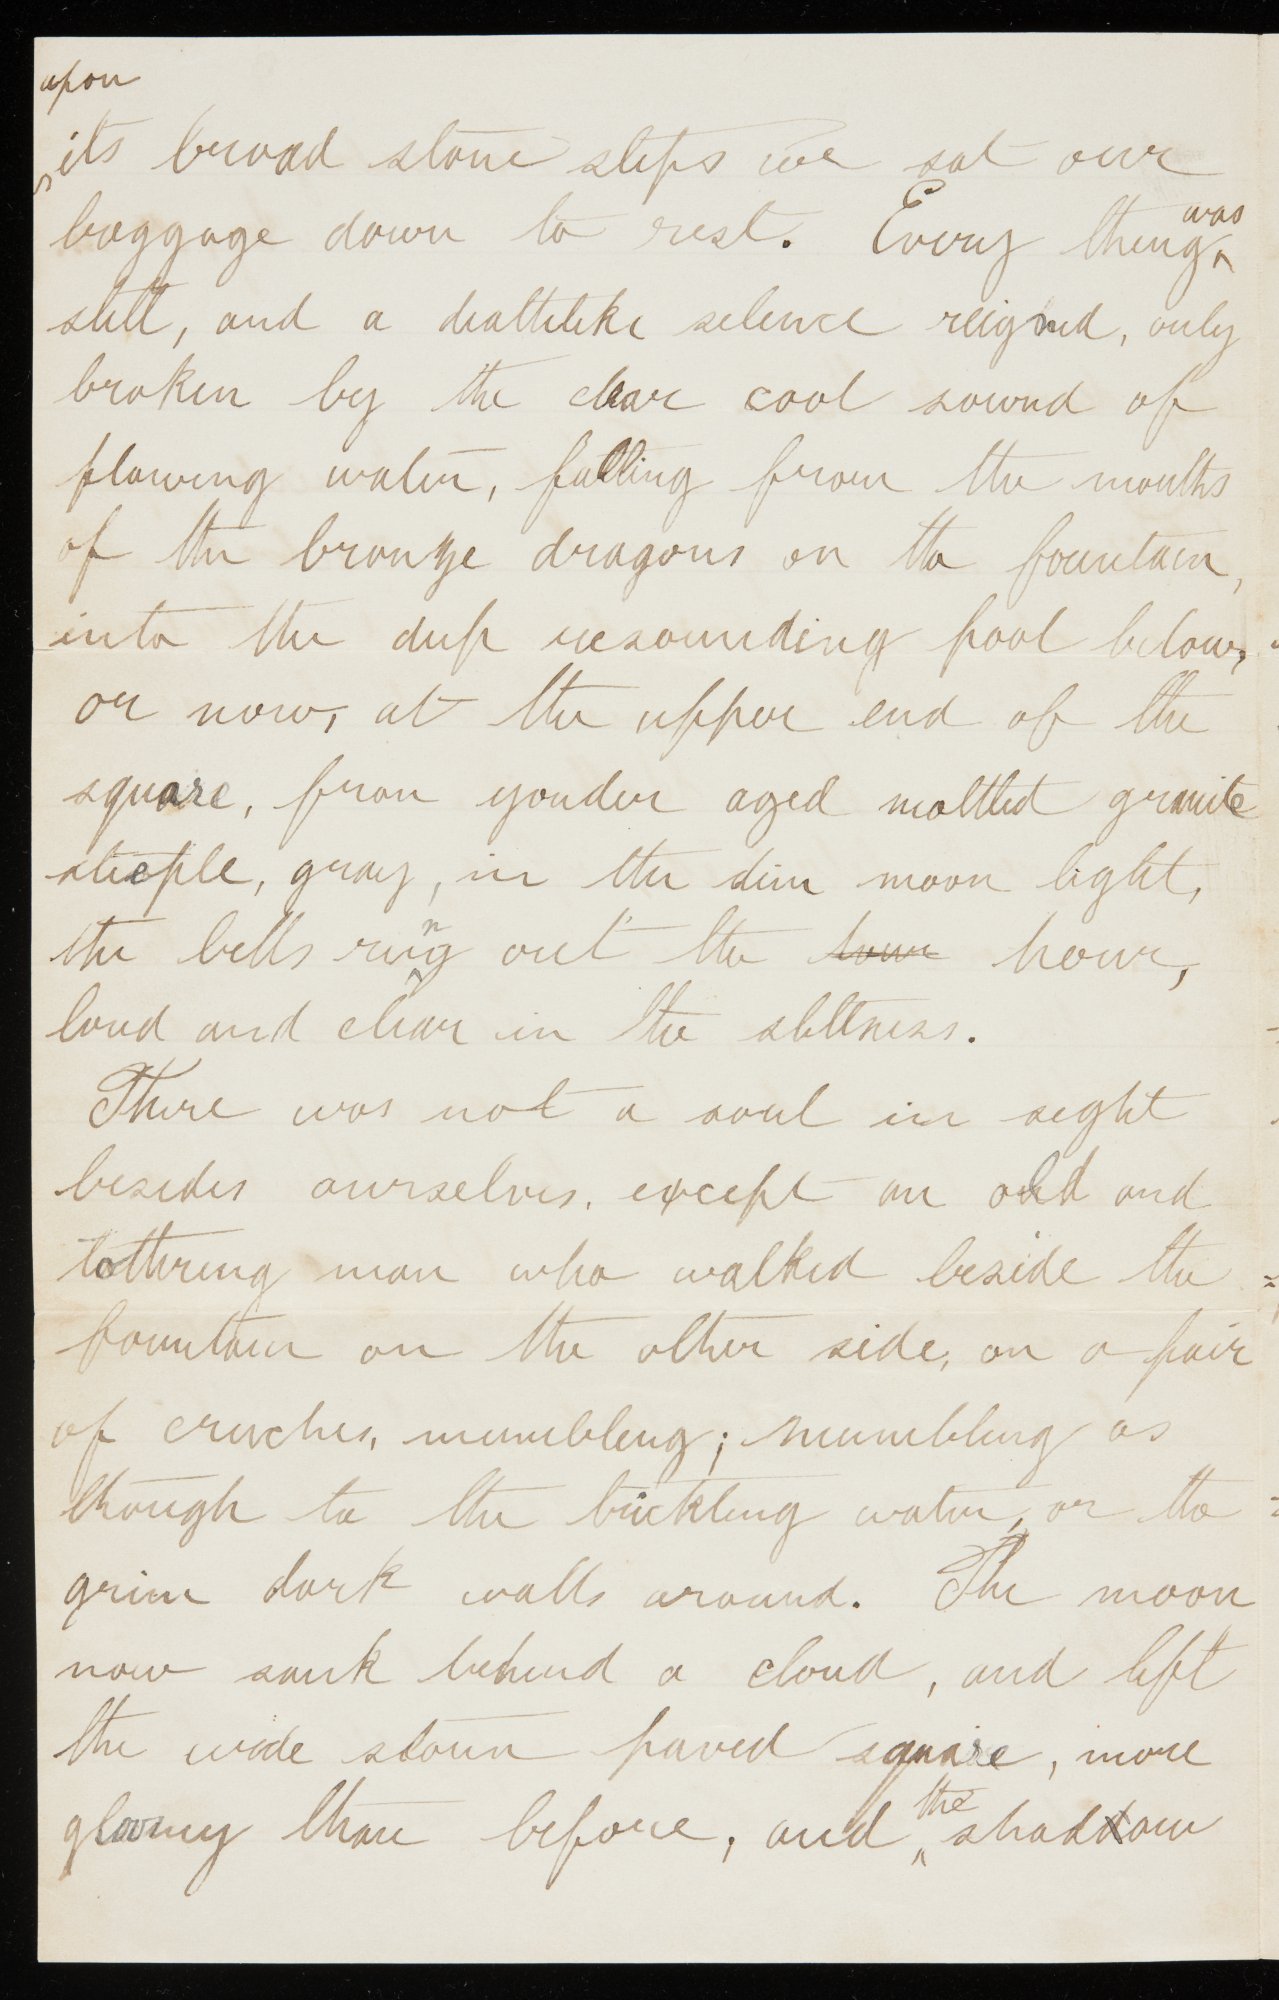 upon
its broad stone steps we sat our
baggage down to rest. Every thing was
still, and a deathlike silence reigned, only
broken by the clear cool sound of
flowing water, falling from the mouths
of the bronze dragons on the fountain,
into the deep resounding pool below,
or now, at the upper end of the
square, from yonder aged mottled granite
steeple, gray, in the dim moon light,
the bells ring out the hour,
loud and clear in the stillness.
There was not a soul in sight
besides ourselves, except an old and
tottering man who walked beside the
fountain on the other side, on a pair
of cruches, mumbling; mumbling as
though to the trickling water, or the
grim dark walls around. The moon
now sank behind a cloud, and left
the wide stone paved square, more
gloomy than before, and the shadow